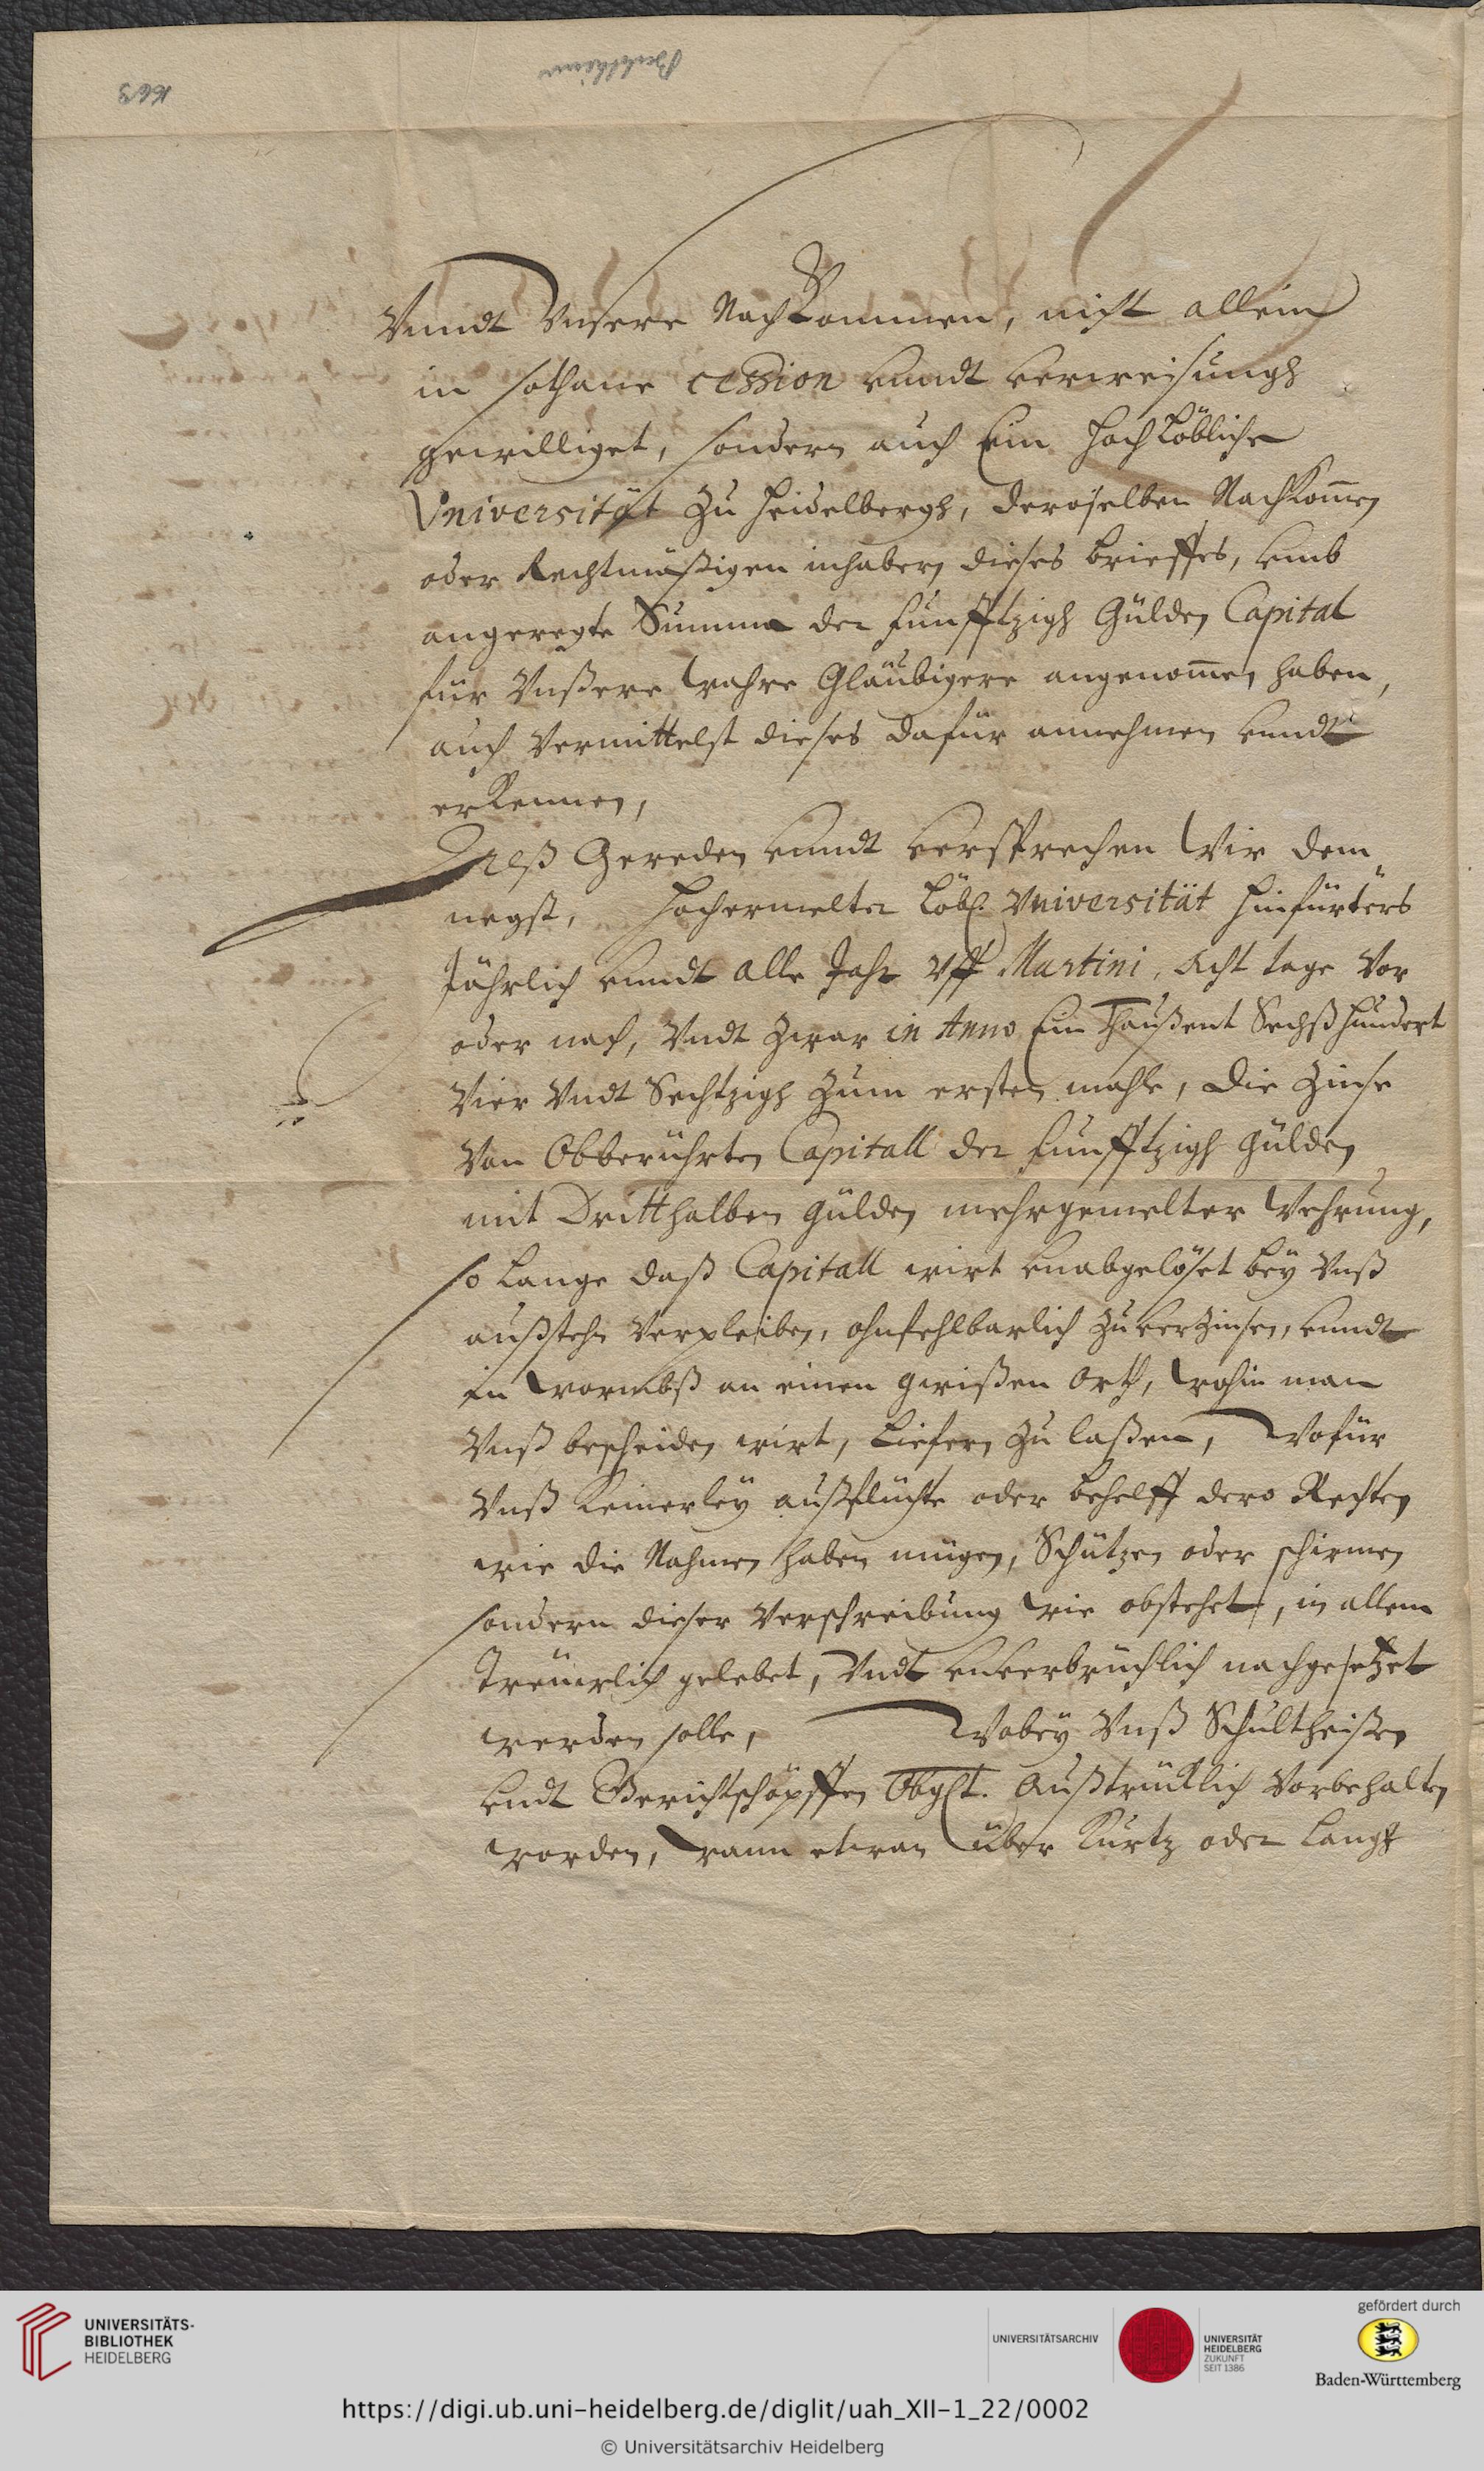 1663
Bechtheim
Vnndt Vnsere Nachkommen, nicht allein
in sothane cession vnndt verweisungh
gewilliget, sondern auch Ein Hochlöbliche
Vniversität zu Heidelbergh, deroselben Nachkom̄en
oder Rechtmäßigen inhabern dieses brieffes, vmb
angeregte Summa der funfftzigh Gülden Capital
für Vnßere wahre Gläubigere angenom̄en haben,
auch Vermittelst dieses dafür annehmen vnndt
erkennen,
Greß Gereden vnndt versprechen Wir dem
negst, Hochermelter Löbl. Vniversität hinfürters
Jährlich vnndt alle Jahr vff Martini, Acht tage Vor
oder nach, Vndt zwar in Anno Ein Thaußent Sechßhundert
Vier Vndt Sechtzigh zum ersten mahle, die Zinse
Von Obberührten Capitall der funfftzigh gülden
mit Dritthalben gülden mehrgemelter Wehrung,
so lange daß Capitall wirt vnabgelößet bey Vnß
außstehn Verpleiben, ohnfehlbarlich zu verzinsen, vnndt
in Wormbß an einen gewißen Orth, wohin man
Vnß bescheiden wirt, Liefern zu laßen, Wofür
Vnß keinerley außflüchte oder behelff dero Rechten
wie die Nahmen haben mügen, Schützen oder schirmen
sondern dieser Verschreibung wie obstehet, in allem
Treuwlich gelebet, Vndt vnverbrüchlich nachgesetzet
werden solle, Wobey Vnß Schultheißen
vndt Gerichtschöpffen Obglt. Außtrücklich Vorbehalten
worden, wann etwan über Kurtz oder langh
UNIVERSITÄTS-
BIBLIOTHEK
HEIDELBERG
UNIVERSITÄTSARCHIV
UNIVERSITÄT
HEIDELBERG
ZUKUNFT
SEIT 1386
gefördert durch
Baden-Württemberg
https://digi.ub.uni-heidelberg.de/diglit/uah_XII-1_22/0002
© Universitätsarchiv Heidelberg